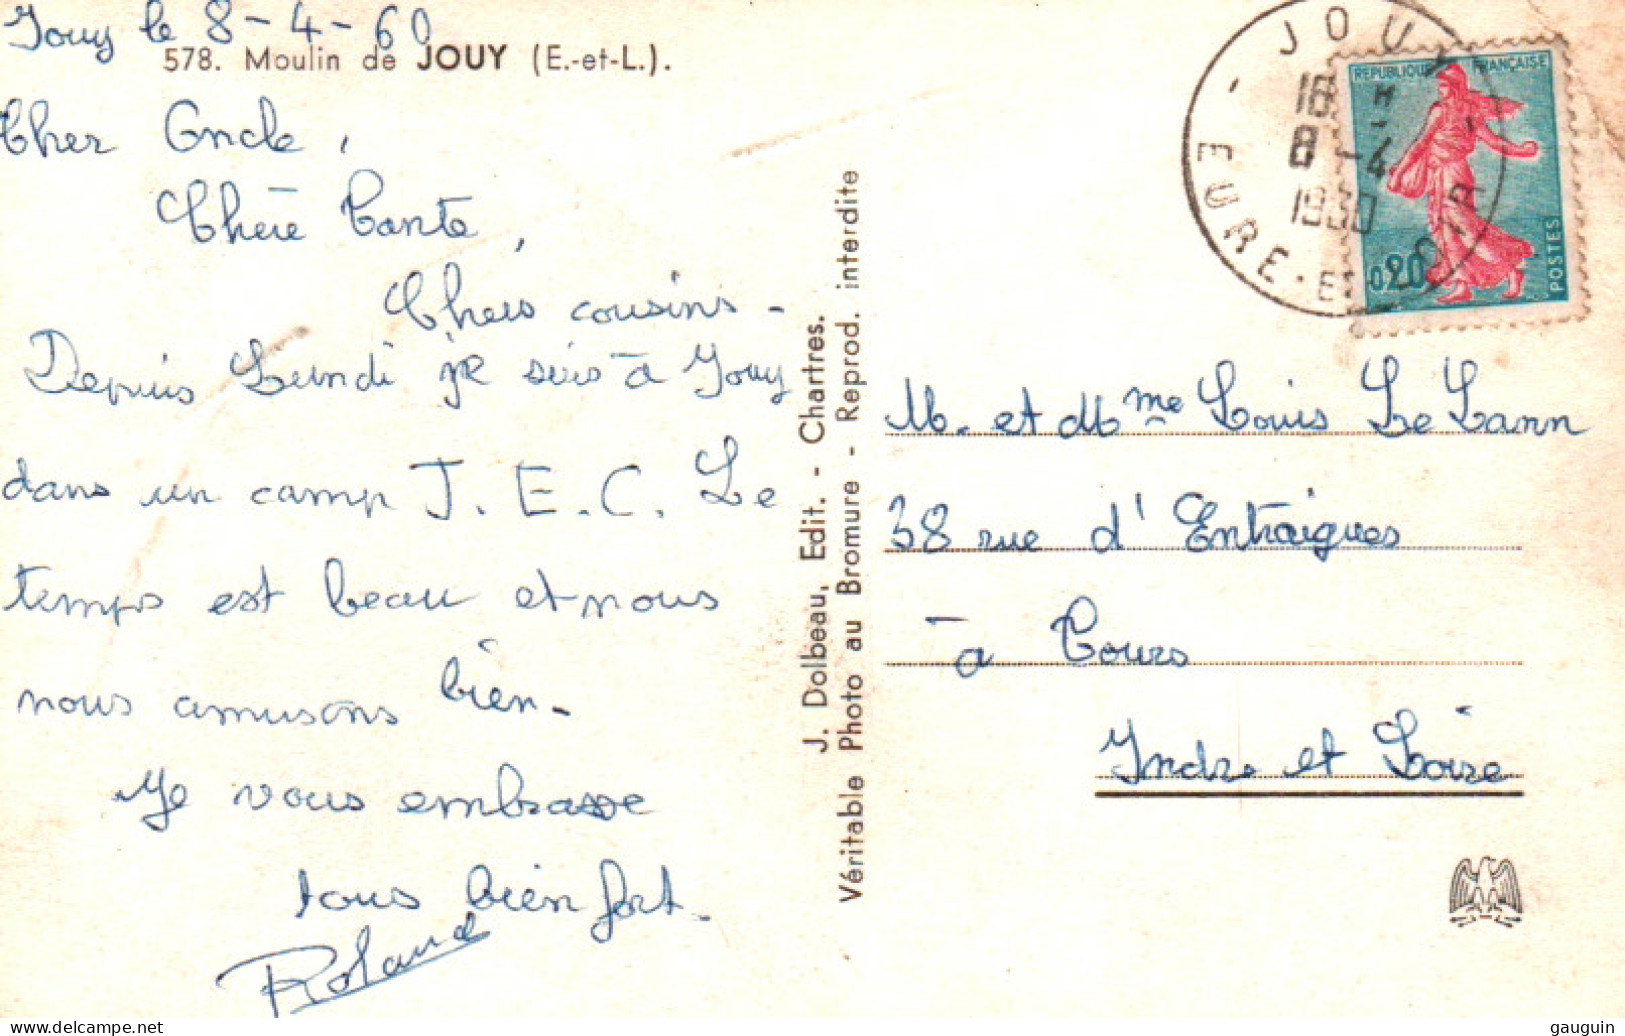 Jouy le 8-4-60
578. Moulin de JOUY (E.-et-L.).
Cher Oncle,
Chère Tante,
Chers cousins-
Depuis Lundi je suis à Jouy
dans un camp J.E.C. Le
temps est beau et nous
nous amusons bien-
Je vous embrasse
tous bien fort.
Roland
J. Dolbeau, Edit. - Chartres.
Véritable Photo au Bromure - Reprod. interdite
- JOUY -
EURE-ET-LOIR
18 H
8 -4
1960
REPUBLIQUE FRANÇAISE
0,20
POSTES
M. et Mme Louis Le Lann
38 rue d'Entraigues
à Tours
Indre et Loire
gauguin